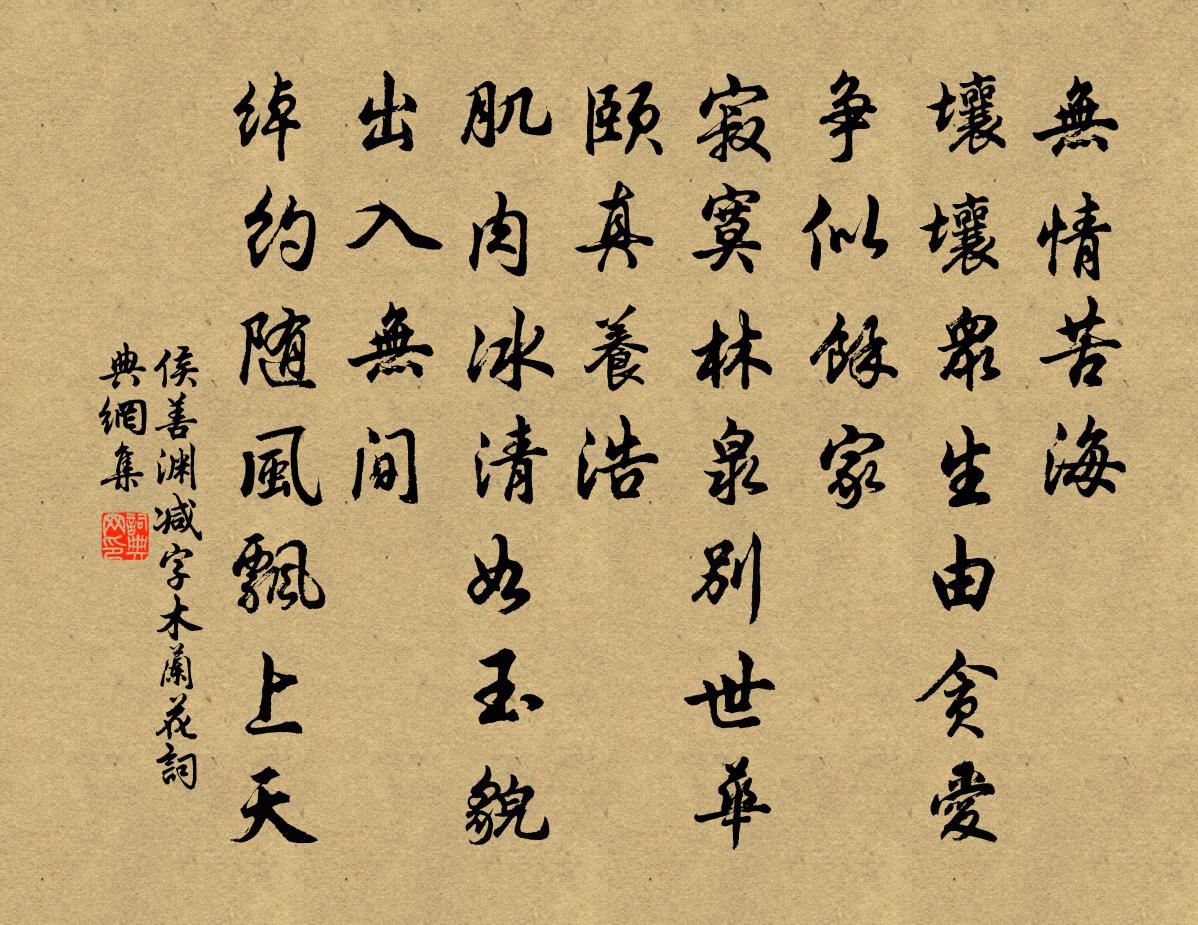 無情苦海
壤壤眾生由貪愛
爭似餘家
寂寞林泉別世華
頤真養浩
肌肉冰清如玉貌
出入無間
綽約随風飄上天
侯善淵减字木蘭花詞
典網集
詞典網印